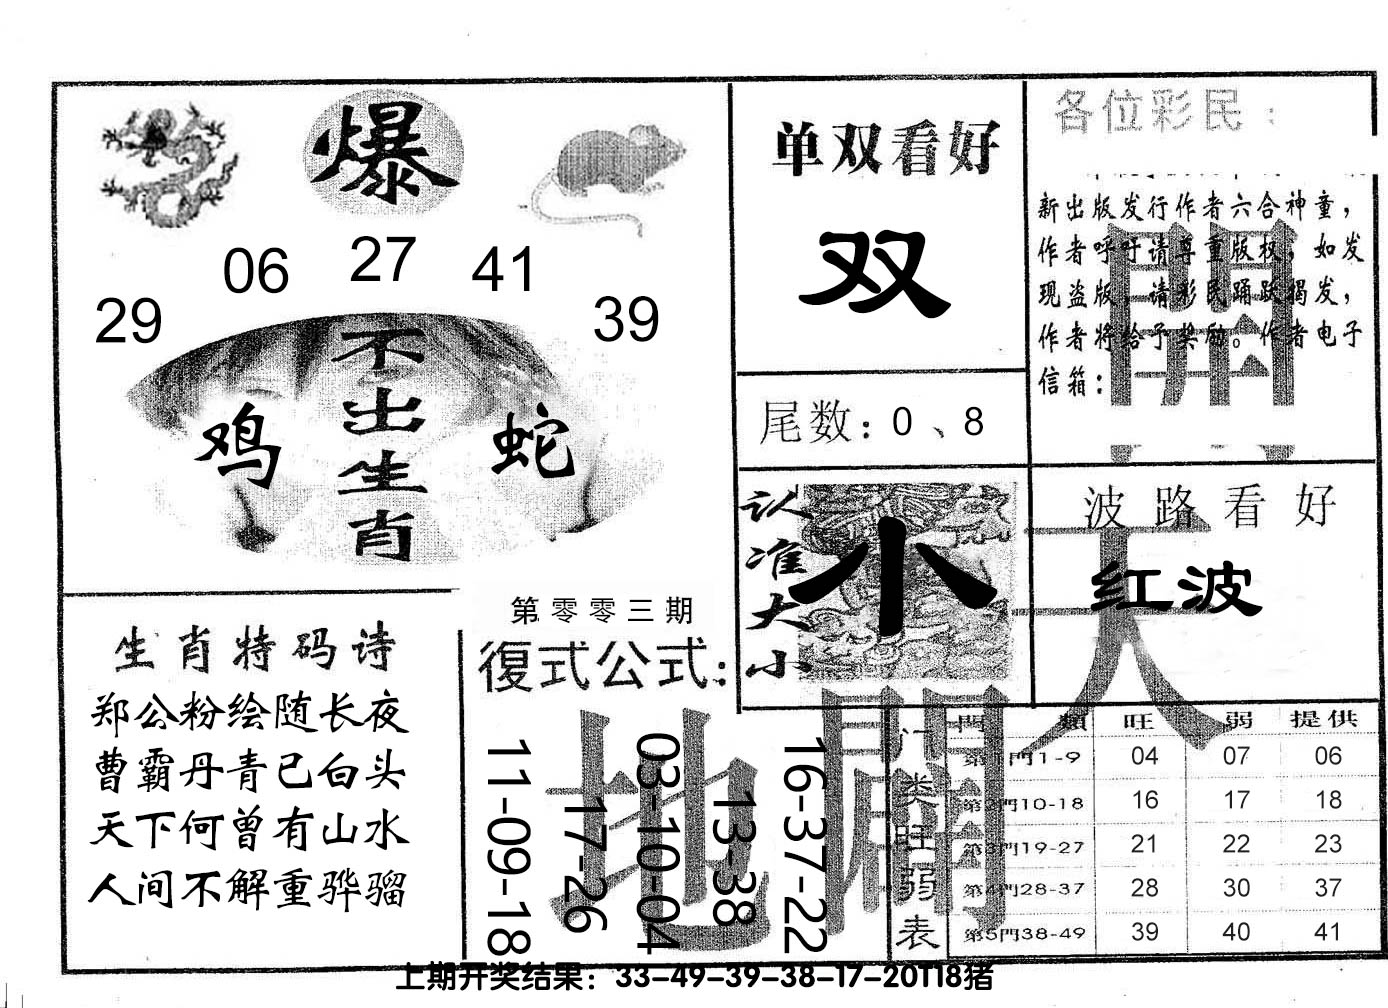 爆
29
06
27
41
39
不出生肖
鸡
蛇
单双看好
双
尾数：0、8
各位彩民：
新出版发行作者六合神童，
作者呼吁请尊重版权，如发
现盗版，请彩民踊跃揭发，
作者将给予奖励。作者电子
信箱：
認准大小
小
波路看好
红波
生肖特码诗
郑公粉绘随长夜
曹霸丹青已白头
天下何曾有山水
人间不解重骅骝
第零零三期
復式公式：
11-09-18
17-26
03-10-04
13-38
16-37-22
天
開
地
闢
门类旺弱表
門類 旺 弱 提供
第1門1-9 04 07 06
第2門10-18 16 17 18
第3門19-27 21 22 23
第4門28-37 28 30 37
第5門38-49 39 40 41
上期开奖结果：33-49-39-38-17-20T18猪